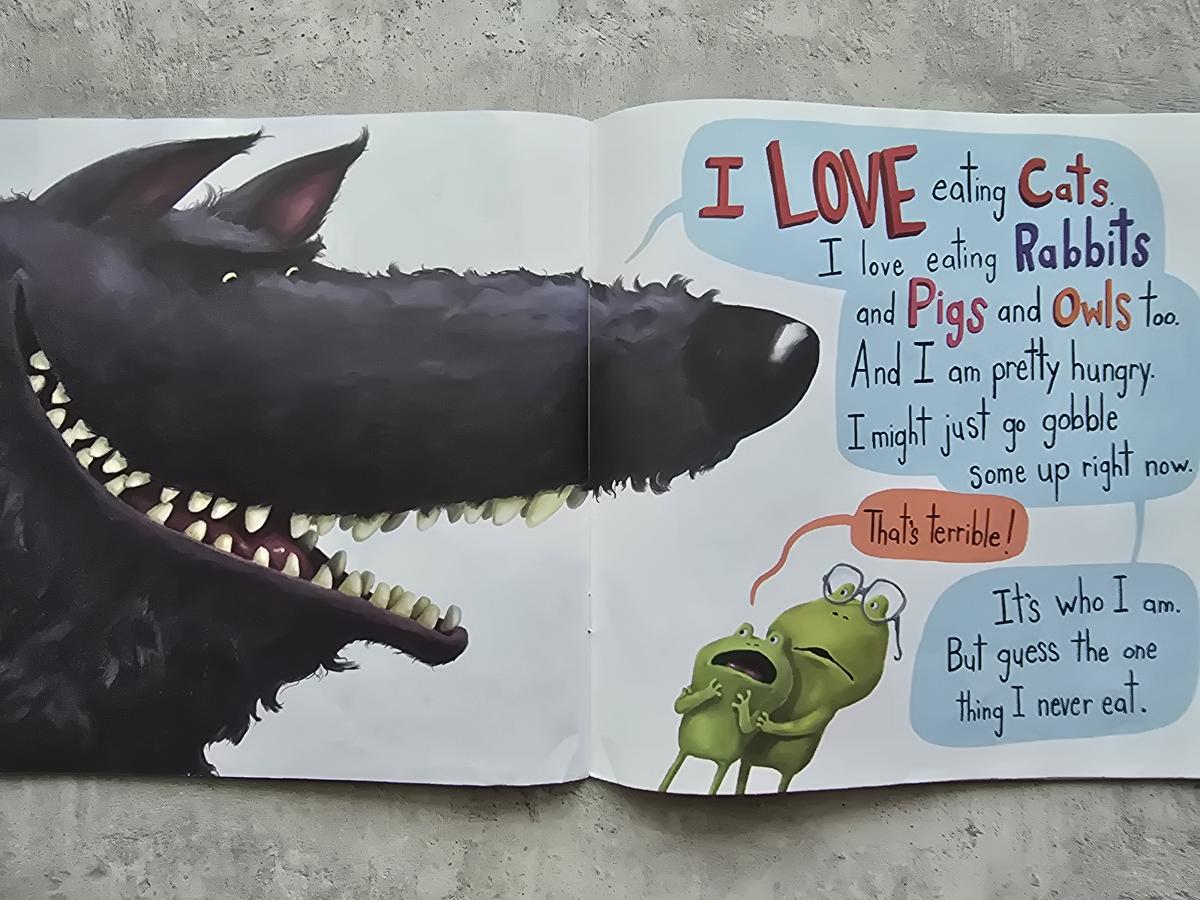 I LOVE eating Cats.
I love eating Rabbits
and Pigs and Owls too.
And I am pretty hungry.
I might just go gobble
some up right now.
That's terrible!
It's who I am.
But guess the one
thing I never eat.